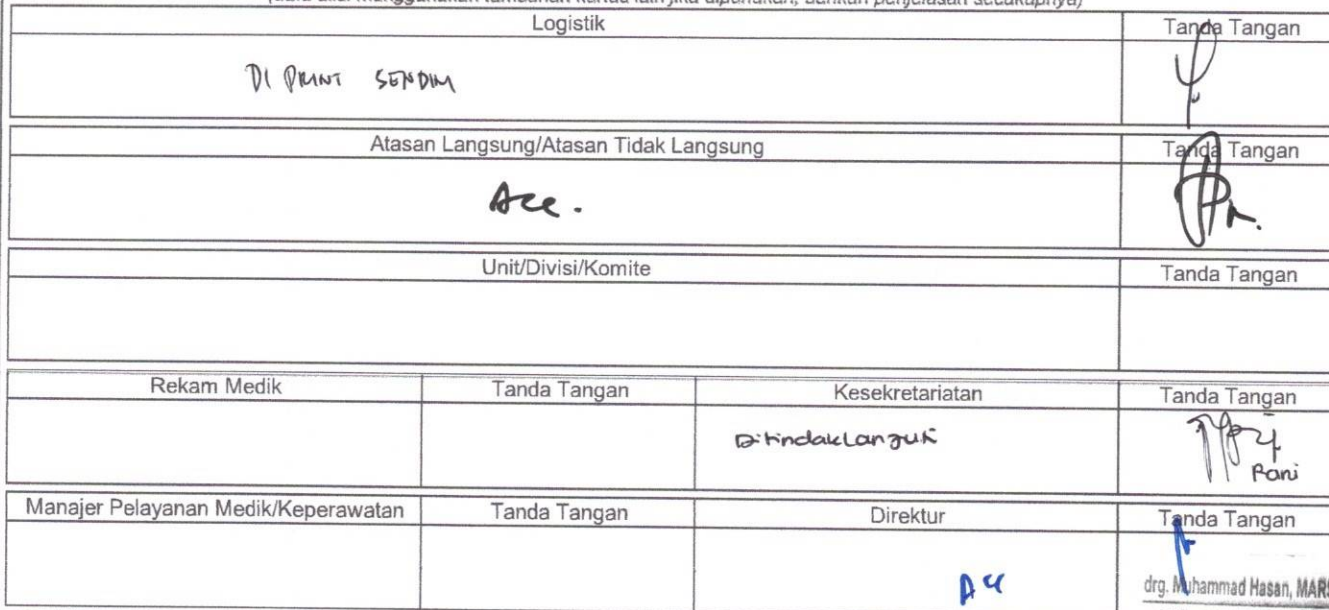 Logistik Tanda Tangan
DI PRINT SENDIRI
Atasan Langsung/Atasan Tidak Langsung Tanda Tangan
Acc.
Unit/Divisi/Komite Tanda Tangan
Rekam Medik Tanda Tangan Kesekretariatan Tanda Tangan
Ditindaklanjuti
Rani
Manajer Pelayanan Medik/Keperawatan Tanda Tangan Direktur Tanda Tangan
Acc
drg. Muhammad Hasan, MARS